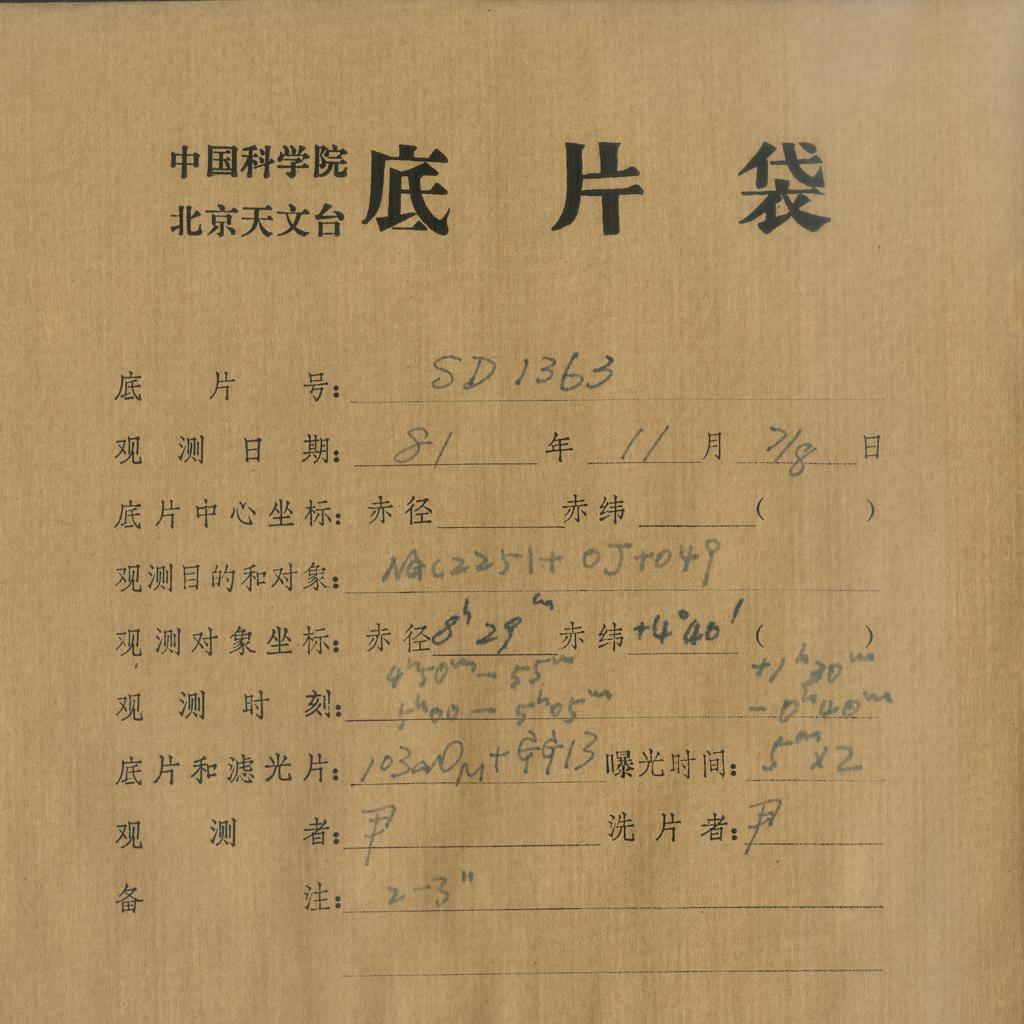 中国科学院
北京天文台
底片袋
底片号: SD 1363
观测日期: 81 年 11 月 7/8 日
底片中心坐标: 赤径 赤纬 ( )
观测目的和对象: NGC2251+ OJ+049
观测对象坐标: 赤径 8h 29m 赤纬 +4°40′ ( )
4h50m — 55m +1h30m
观测时刻: 5h00 — 5h05m -0h40m
底片和滤光片: 103aOM+GG13 曝光时间: 5m×2
观测者: 尹 洗片者: 尹
备注: 2-3"